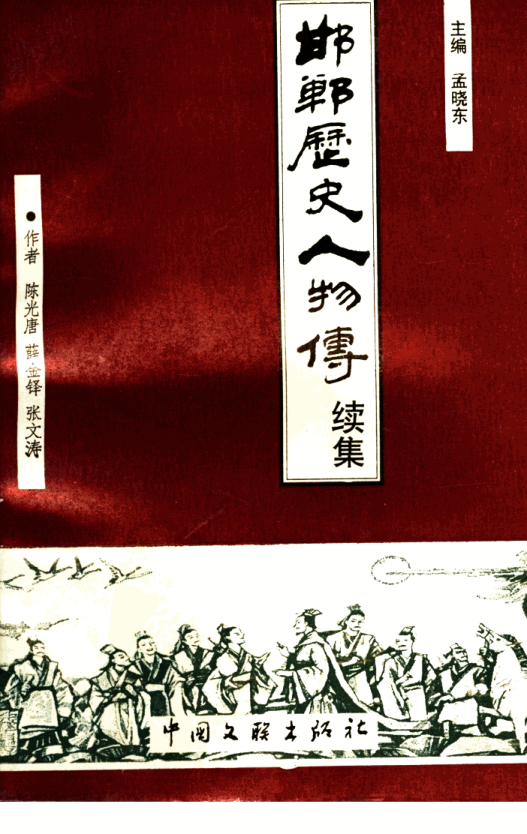 主编 孟晓东
邯郸歷史人物傳
续集
●作者 陈光唐 薛金铎 张文涛
中国文联出版社